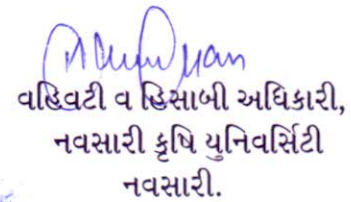 વહિવટી વ હિસાબી અધિકારી,
નવસારી કૃષિ યુનિવર્સિટી
નવસારી.